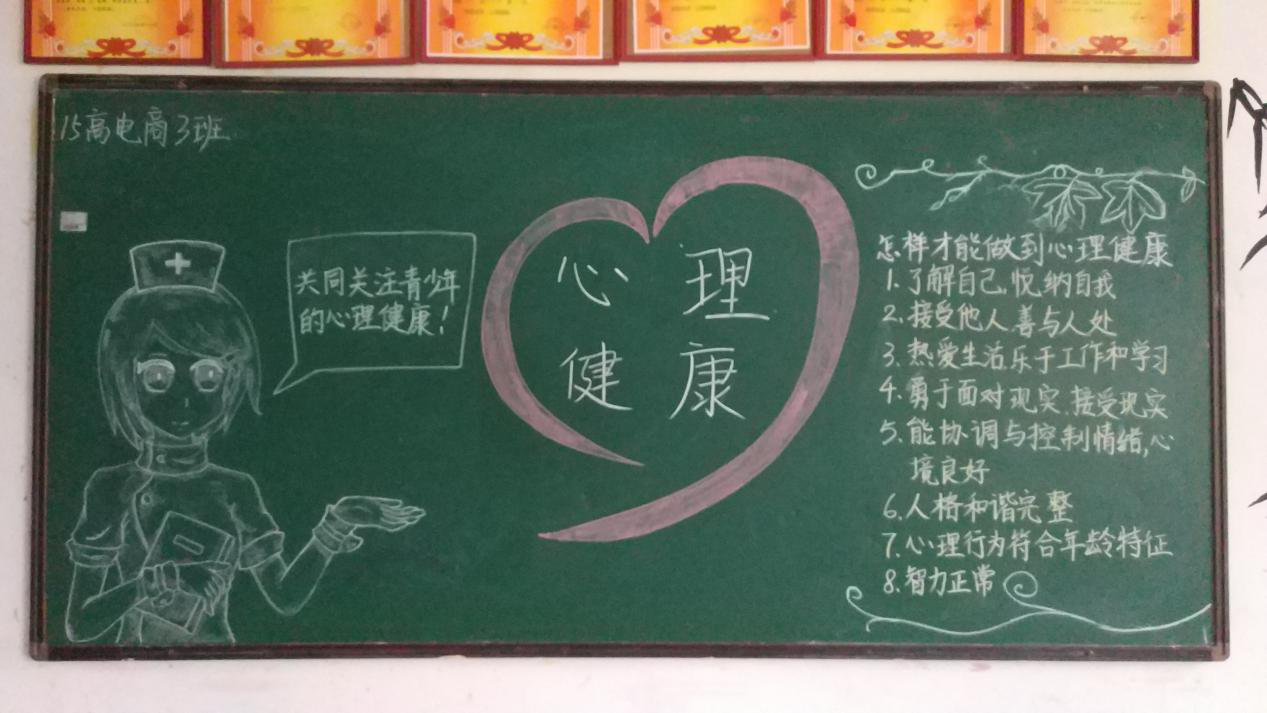 15高电商3班
共同关注青少年
的心理健康!
心理
健康
怎样才能做到心理健康
1.了解自己,悦纳自我
2.接受他人,善与人处
3.热爱生活,乐于工作和学习
4.勇于面对现实,接受现实
5.能协调与控制情绪,心
境良好
6.人格和谐完整
7.心理行为符合年龄特征
8.智力正常